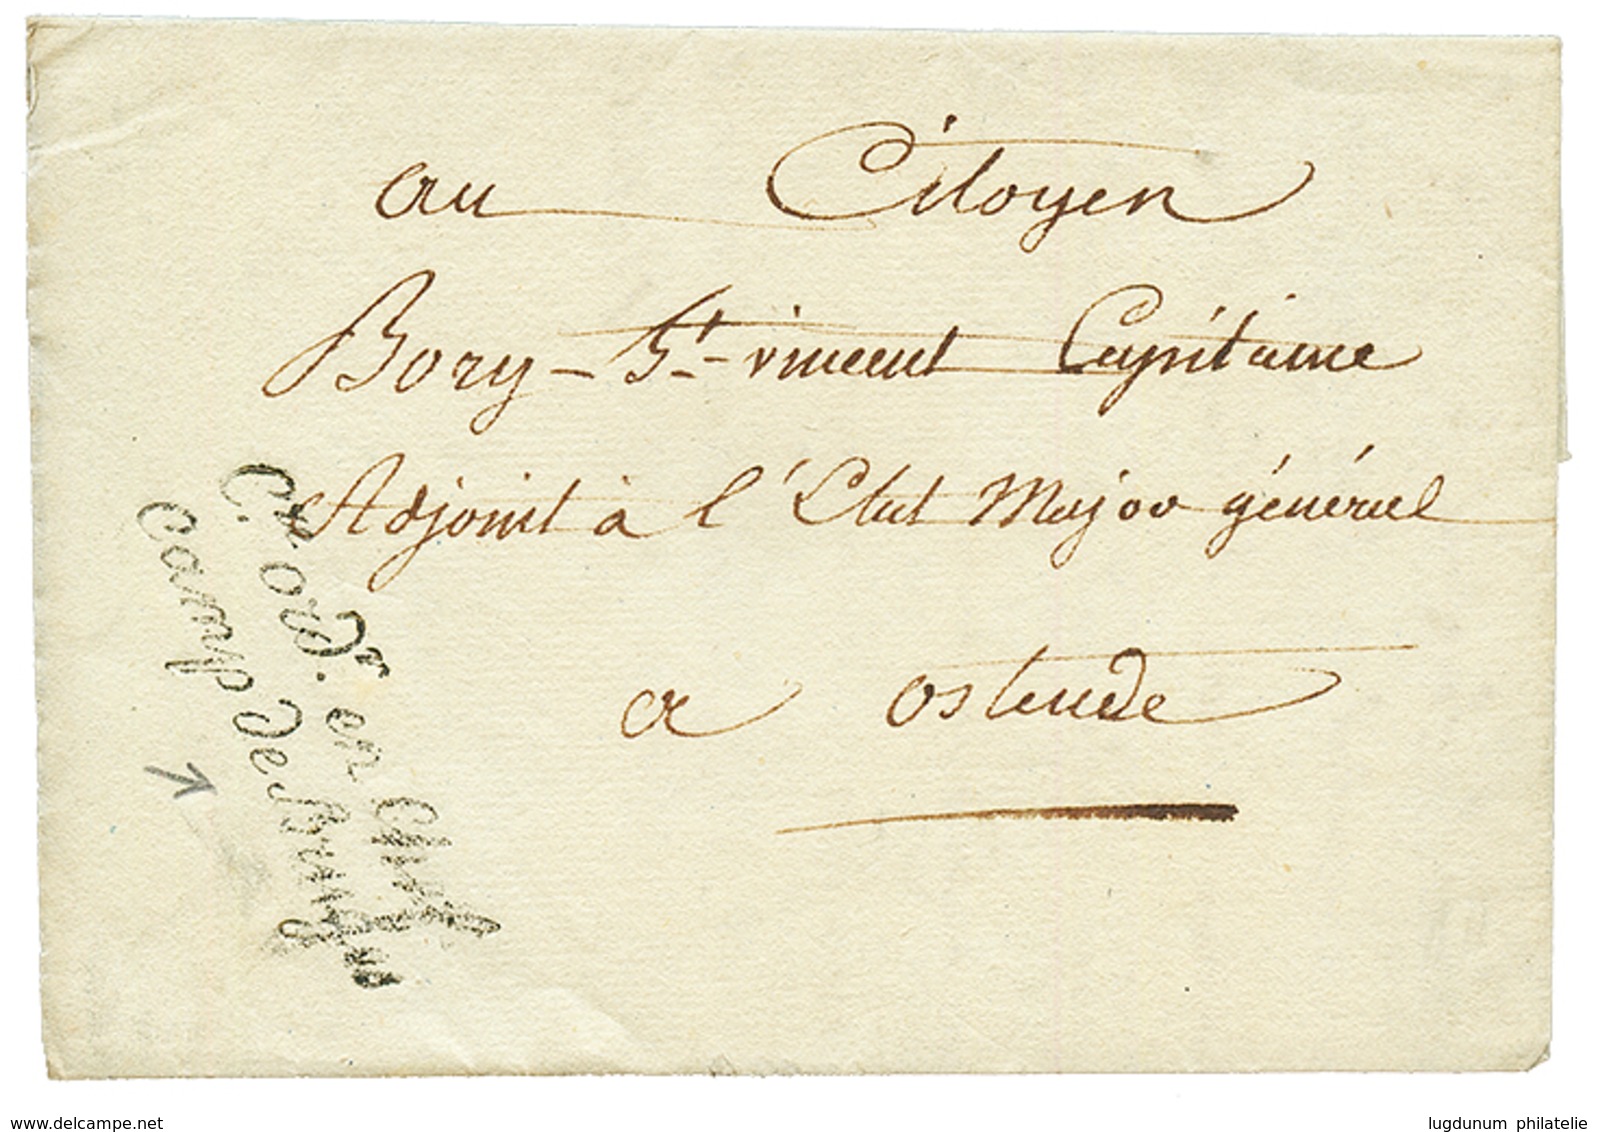 au Citoyen
Bory - St - vincent Capitaine
Adjoint à l'Etat Major général
a ostende
C.re ordr. en Chef
Camp de Bruges
delcampe.net
lugdunum philatelie